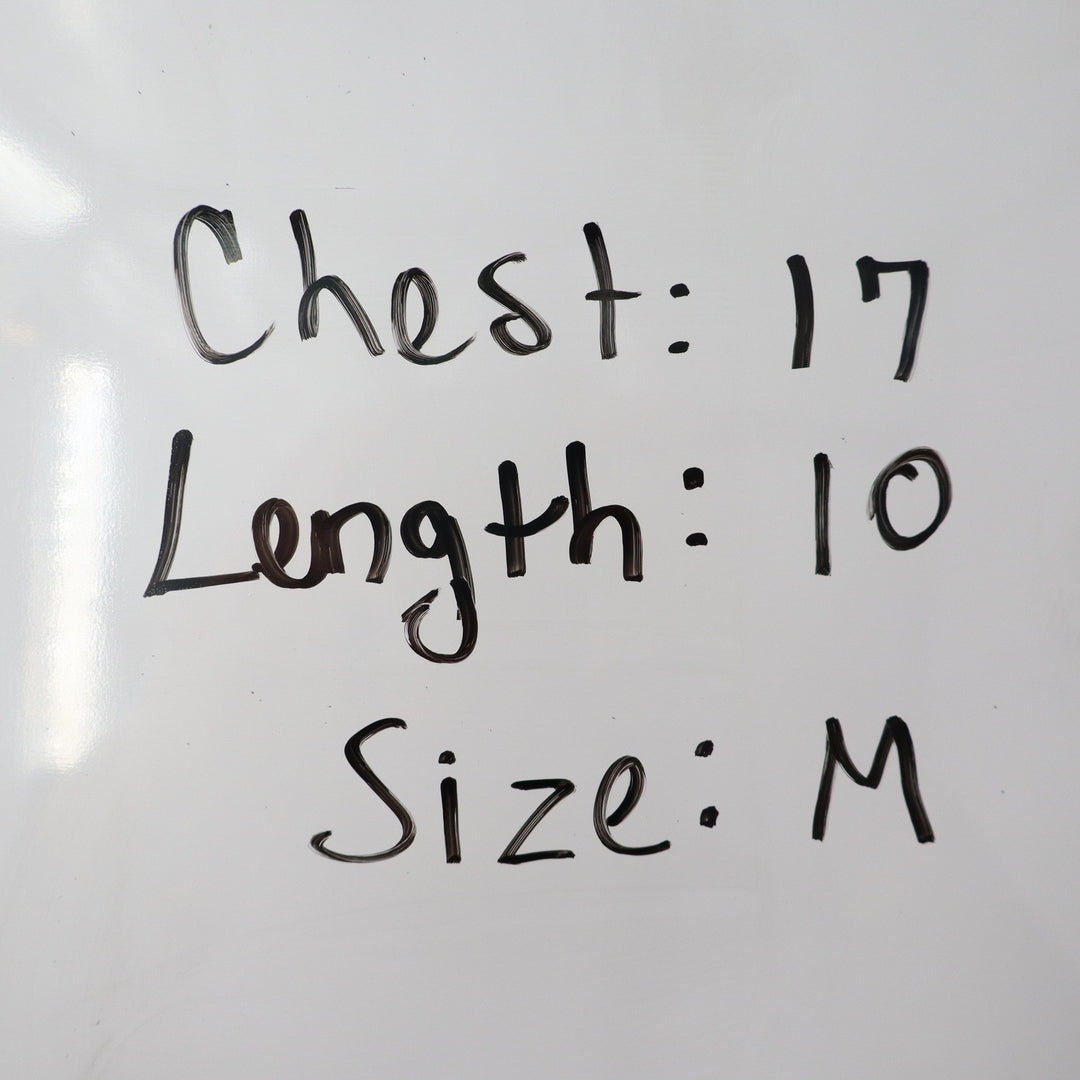 Chest: 17
Length: 10
Size: M